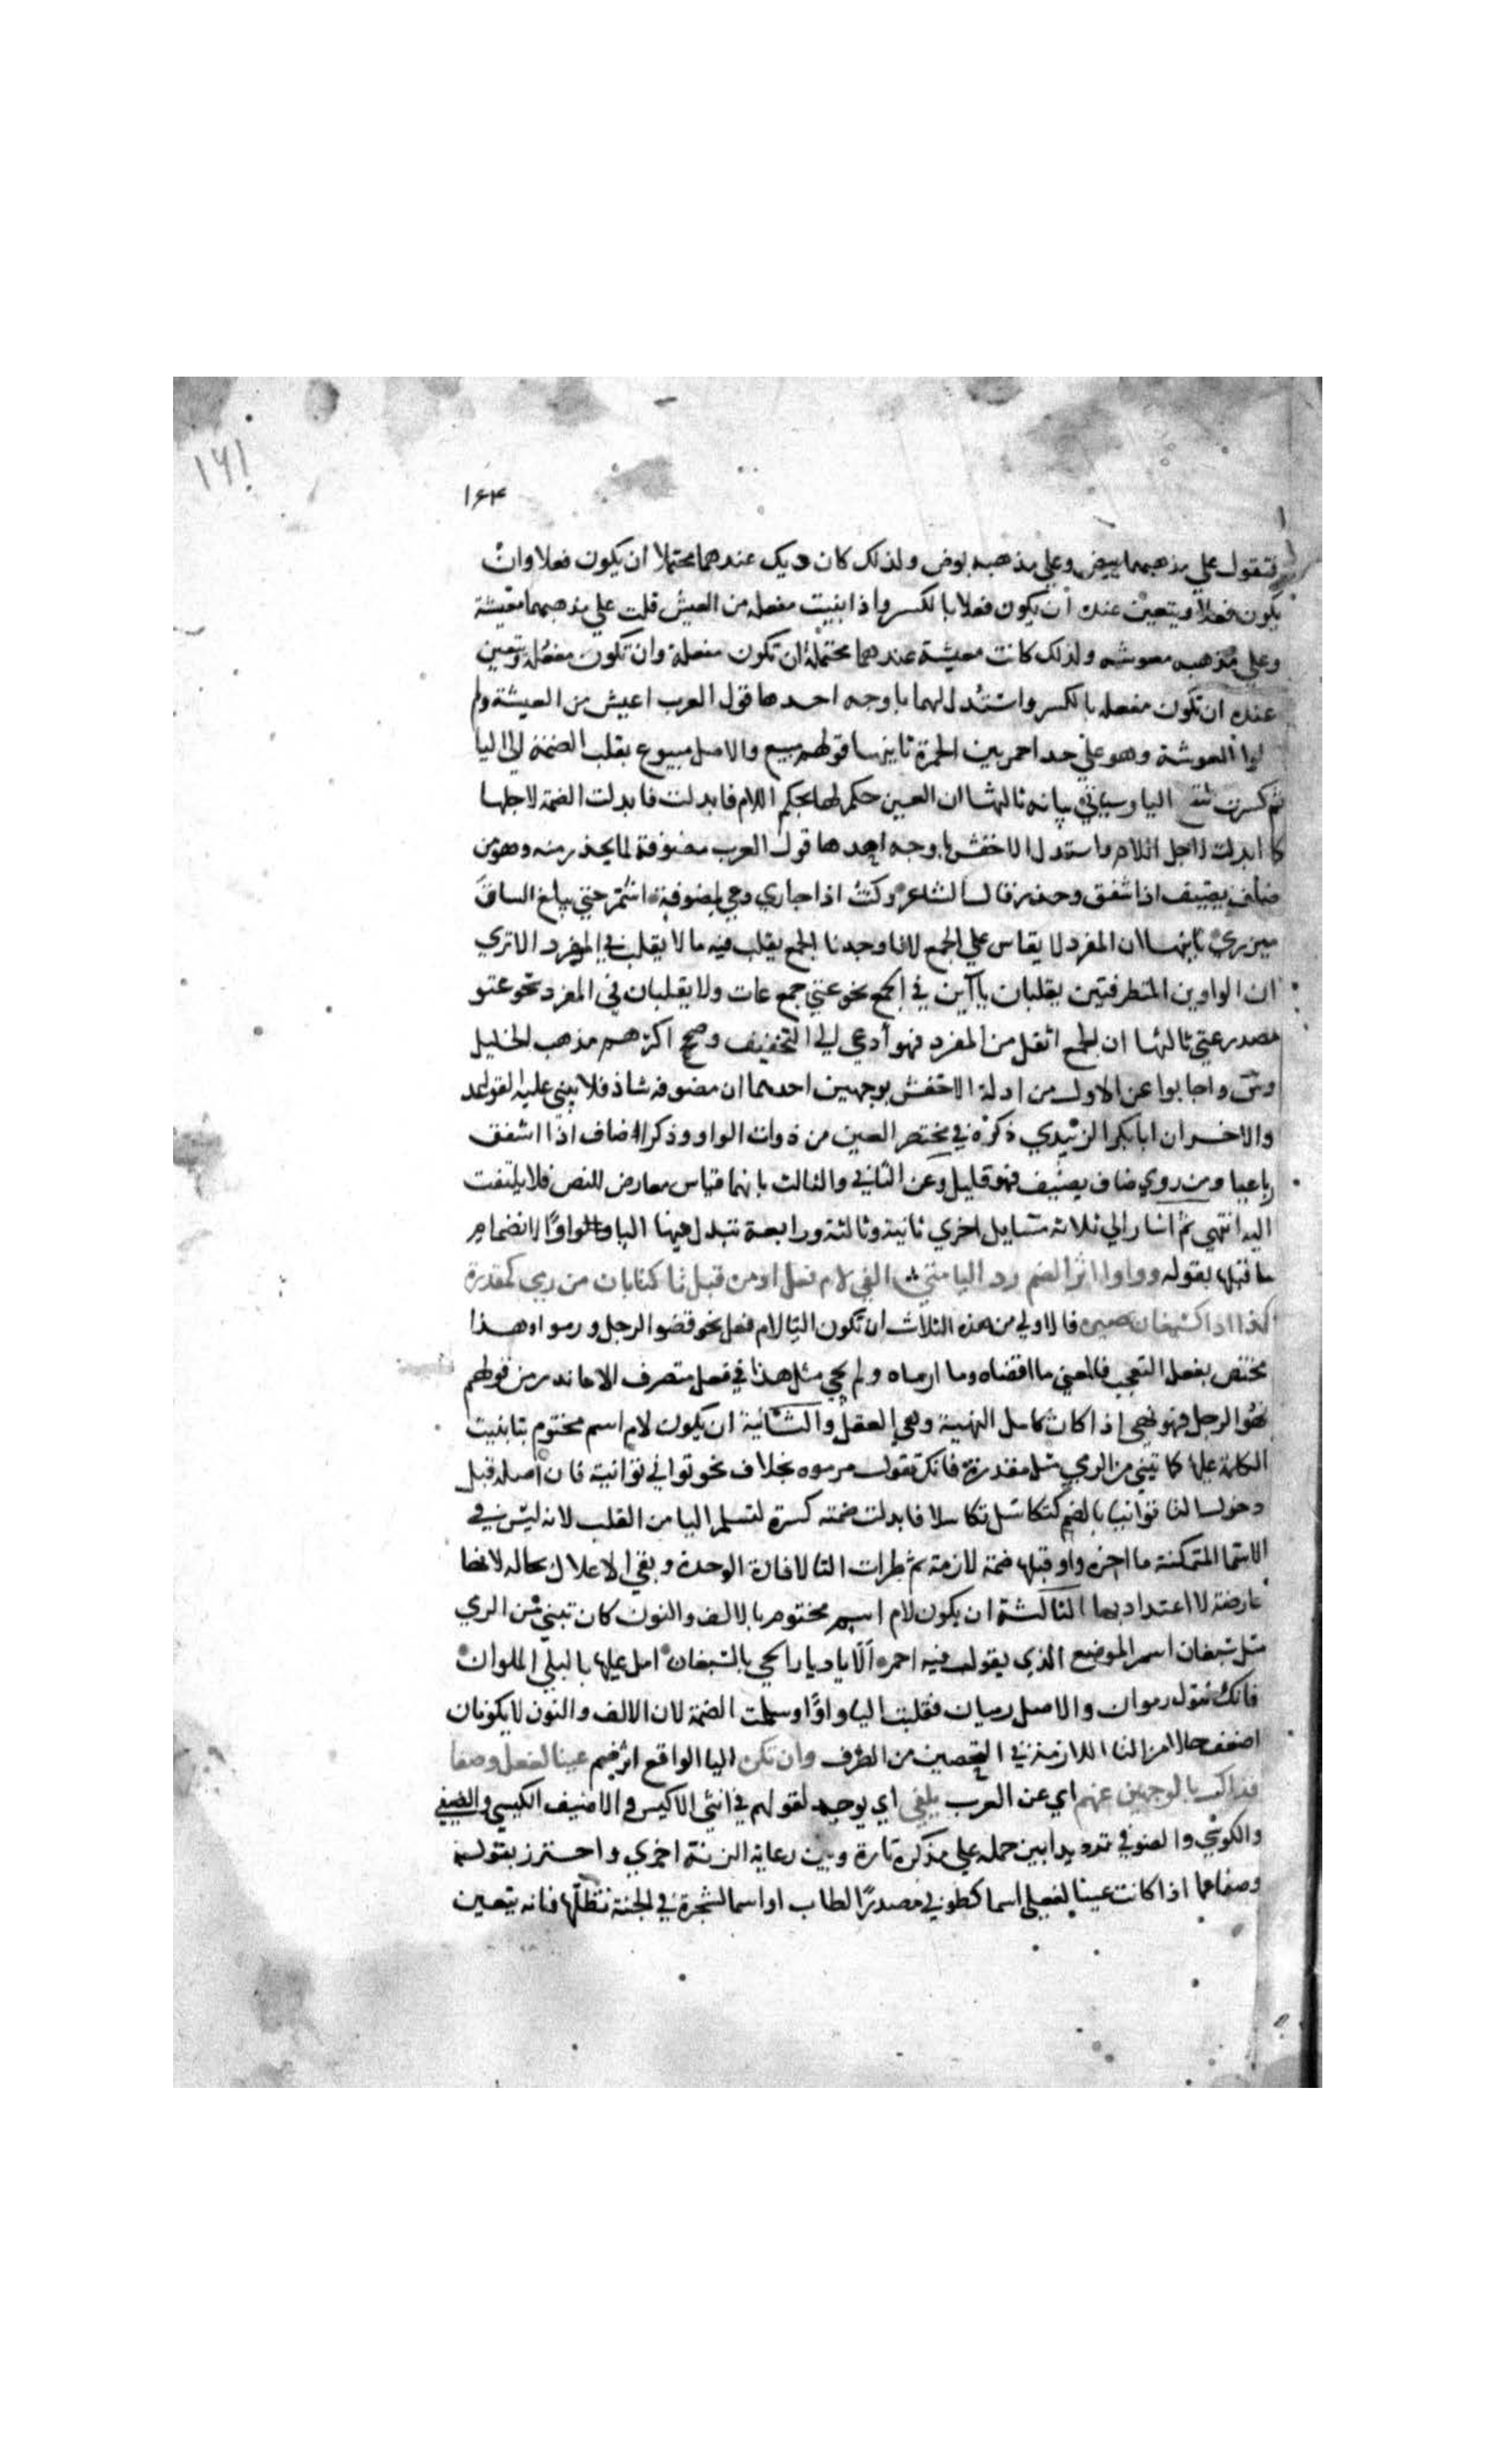 ١٦١
١٦٣
فتقول علي مذهبهما بيض وعلي مذهبه بوض ولذلك كان ديك عندهما محتملا ان يكون فعلا وان
يكون فعلا ويتعين عنده ان يكون فعلا بالكسر واذا بنيت مفعلة من العيش قلت علي مذهبهما معيشة
وعلي مذهبه معوشه ولذلك كانت معيشة عندهما محتملة ان تكون مفعلة وان تكون مفعلة ويتعين
عنده ان تكون مفعله بالكسر واستدل لهما باوجه احدها قول العرب اعيش من العيشة ولم
لوا العوشة وهو علي حد احمر بين الحمرة ثانيها قولهم مبيع والاصل مبيوع بقلب الضمة الي اليا
ثم كسرت اليا وسياتي بيانه ثالثها ان العين حكم لها بحكم اللام فابدلت فابدلت الضمة لاجلها
كما ابدلت لاجل اللام واستدل الاخفش باوجه احدها قول العرب مضوفة لما يحذر منه وهو من
ضاف يضيف اذا شفق وحذر قال الشاعر وكنت اذا جاري دعي لمضوفة اشمر حتي يبلغ الساق
ميزري ثانيها ان المفرد لا يقاس علي الجمع لانا وجدنا الجمع يقلب فيه ما لا يقلب في المفرد الا تري
ان الواوين المتطرفتين يقلبان ياآين في الجمع نحو عتي جمع عات ولا يقلبان في المفرد نحو عتو
مصدر عتي ثالثها ان الجمع اثقل من المفرد فهو أدعي الي التخفيف وصحح اكثرهم مذهب الخليل
وس واجابوا عن الاول من ادلة الاخفش بوجهين احدهما ان مضوفه شاذ فلا يبني عليه القواعد
والاخر ان ابابكر الزبيدي ذكره في مختصر العين من ذوات الواو وذكر اضاف اذا اشفق
رباعيا ومن روي ضاف يضيف فهو قليل وعن الثاني والثالث بانهما قياس معارض للنص فلا يلتفت
اليه انتهي ثم اشار الي ثلاثة مسايل اخري ثانية وثالثة ورابعة تبدل فيها اليا واوًا لانضمام
ما قبلها بقوله وواوا اثر الضم رد اليا متي الفي لام فعل او من قبل تا كتابان من رمي كمقدرة
كذا اذا كسبعان صيره فالاولي من هذه الثلاث ان تكون اليا لام فعل نحو قضو الرجل ورموا وهذا
مختص بفعل التعجب فالمعني ما اقضاه وما ارماه ولم يجي مثل هذا في فعل متصرف الا ما ندر من قولهم
نهو الرجل فهو نهي اذا كان كامل النهية وهي العقل والثانية ان يكون لام اسم مختوم بتا بنيت
الكلمة عليها كا تبني من الرمي مثل مقدرة فانك تقول مرموه بخلاف نحو تواني توانية فان اصله قبل
دخول التا توانيا بالضم كتكاسل تكاسلا فابدلت ضمته كسرة لتسلم اليا من القلب لانه ليس في
الاسما المتمكنة ما اخره واو قبلها ضمة لازمة ثم طرات التا لافادة الوحدة وبقي الاعلال بحاله لانها
عارضة لا اعتداد بها الثالثة ان يكون لام اسم مختوم بالالف والنون كان تبني من الرمي
مثل سبعان اسم الموضع الذي يقول فيه احمر الا ياديار الحي بالسبعان امل عليها بالبلي الملوان
فانك تقول رموان والاصل رميان فقلبت اليا واوًا وسلمت الضمة لان الالف والنون لا يكونان
اضعف حالا من التا اللازمة في التحصين من الطرف وان تكن اليا الواقع اثر ضم عينا لفعلي وصفا
فذاك بالوجهين عنهم اي عن العرب يلفي اي يوجد لقولهم في انثي الاكيس والاضيف الكيسي والضيفي
والكوسي والضوفي ترديدا بين حمله علي مذكره تارة وبين رعاية الزنة اخري واحترز بقوله
وصفا عما اذا كانت عينا لفعلي اسما كطوبي مصدرًا لطاب او اسما لشجرة في الجنة تظلها فانه يتعين